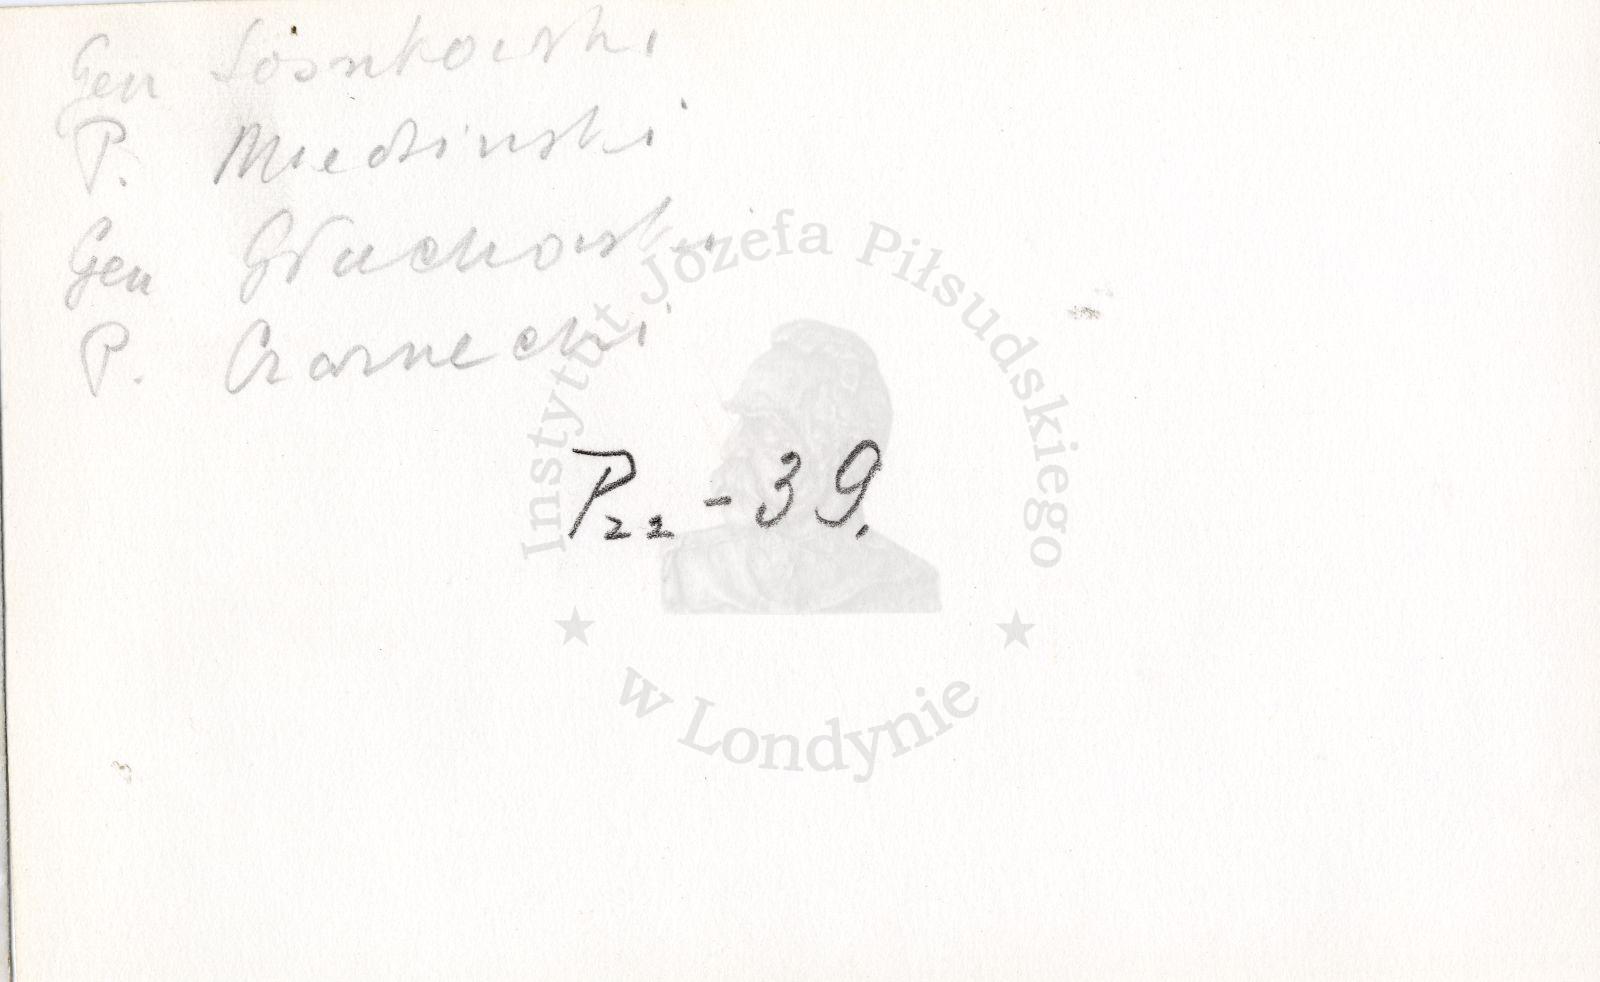 Gen Sosnkowski
P. Miedzinski
Gen Głuchowski
P. Czarnecki
P22 - 39.
Instytut Józefa Piłsudskiego
w Londynie